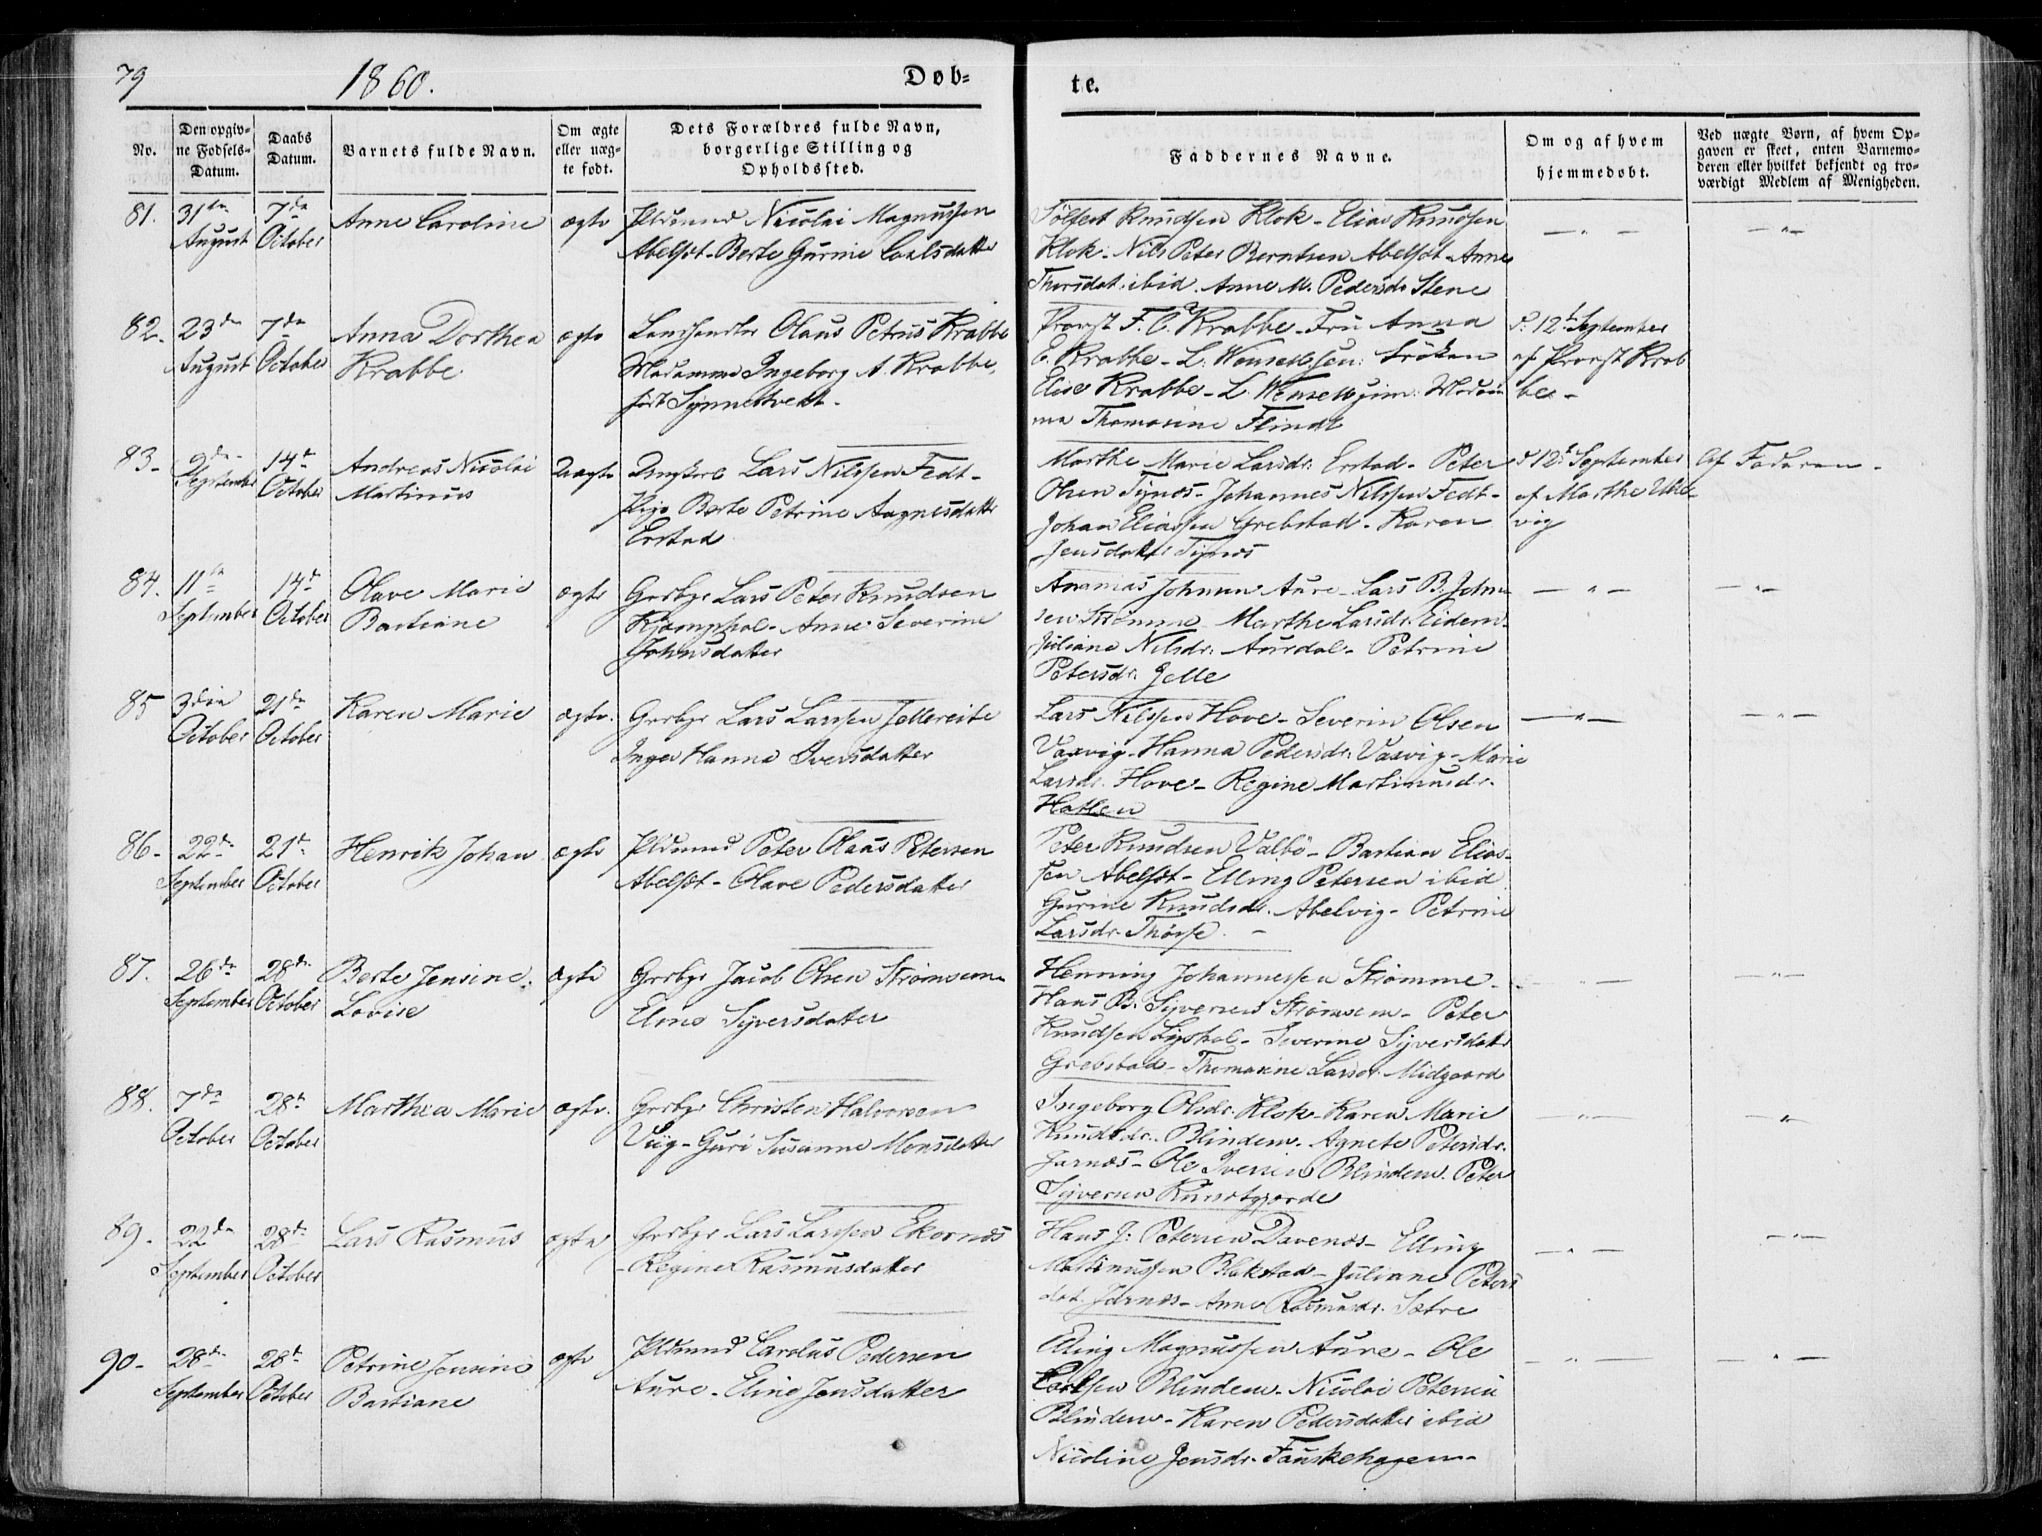 79
1860.
Døb-
te.
No.
Den opgiv-
ne Fødsels-
Datum.
Daabs
Datum.
Barnets fulde Navn.
Om ægte
eller uæg-
te født.
Dets Forældres fulde Navn,
borgerlige Stilling og
Opholdssted.
Faddernes Navne.
Om og af hvem
hjemmedøbt.
Ved uægte Børn, af hvem Op-
gaven er skeet, enten Barnemo-
deren eller hvilket bekjendt og tro-
værdigt Medlem af Menigheden.
81.
31te
August
7de
October
Anne Caroline
ægte
Pldsmnd Nicolai Magnussen
Abelsæt - Berte Gurine Carlsdatter
Knudsen Klok - Elias Knudsen
Klok - Nils Peter Berntsen Abelsæt - Anne
Thorsdat. ibid. Anne M. Pedersdr Stene
82.
23de
August
7de
October
Anna Dorthea
Krabbe
ægte
Landhandler Olaus Petrus Krabbe
Madamme Ingeborg A. Krabbe,
født Synnestvedt -
Provst F. C. Krabbe - Fru Anna
E. Krabbe - L. Frøken
Elise Krabbe - L. Madam-
ma Thomasine Flindt
d. 12te September
af Provst Krab
be -
83.
9de
September
14de
October
Andreas Nicolai
Martinus
Uægte
Ungkarl Lars Nilssen Fedt -
Pige Berte Petrine Aagnesdatter
Erstad
Marthe Marie Larsdr. Erstad - Peter
Olsen Tynes - Johannes Nilssen Fedt -
Johan Eliassen Grebstad - Karen
Jensdatter Tynes
d 12te September
af Marthe Ulle-
vig
Af Faderen -
84.
11te
September
14de
October
Olave Marie
Bastiane
ægte
Grdbgr Lars Peter Knudsen
Kjæmphol - Anne Severine
Johnsdatter
Ananias Johnsen Aure - Lars B. John-
sen Strømme - Marthe Larsdr. Eidem -
Juliane Nilsdr. Aurdal - Petrine
Petersdr. Jelle
85
3die
October
21de
October
Karen Marie
ægte.
Grdbgr Lars Larssen Jellereite
Inger Hanna Iversdatter
Lars Nilssen Hove - Severin Olsen
Vaxvig - Hanna Pedersdr. Vaxvig - Marie
Larsdr. Hove - Regine Martinusdr.
Hatlen
86 -
22de
September
21de
October
Henrik Johan
ægte
Pldsmnd Peter Olaus Petersen
Abelsæt - Olave Pedersdatter
Peter Knudsen Valbø - Bastian Elias-
sen Abelsæt - Elling Petersen ibid
Gurine Knudsdr. Abelvig - Petrine
Larsdr. Thørse. -
87.
26de
September
28de
October
Berte Jensine
Lovise
ægte
Grdbgr Jacob Olsen Strømsem
Eline Syversdatter
Henning Johannessen Strømme -
Hans B. Syversen Strømsem - Peter
Knudsen Lyshol - Severine Syversdatr
Grebstad - Thomasine Larsdr. Midgaard
88.
7de
October
28de
October
Marthea Marie
ægte.
Grdbgr Christen Halvorsen
Viig - Guri Susanne Monsdatter
Ingeborg Olsdr. Klok - Karen Marie
Knudsdr. Blindem - Agnete Petersdr.
Jarnes - Ole Iversen Blindem. Peter
Syversen
89.
22de
September
28de
October
Lars Rasmus
ægte
Grdbgr Lars Larssen Ekornes
- Regine Rasmusdatter
Hans J. Petersen Davenes - Elling
Martinussen Blakstad - Juliane Peters
dat. Jarnes - Anne Rasmusdr. Sætre
90 -
28de
September
28de
October
Petrine Jensine
Bastiane
ægte
Pldsmnd Carolus Pedersen
Aure - Eline Jensdatter
Elling Magnussen Aure - Ole
Carlsen Blindem - Nicolai Petersen
Blindem - Karen Pedersdatter ibid
Nicoline Jensdr. Fauskehagen -